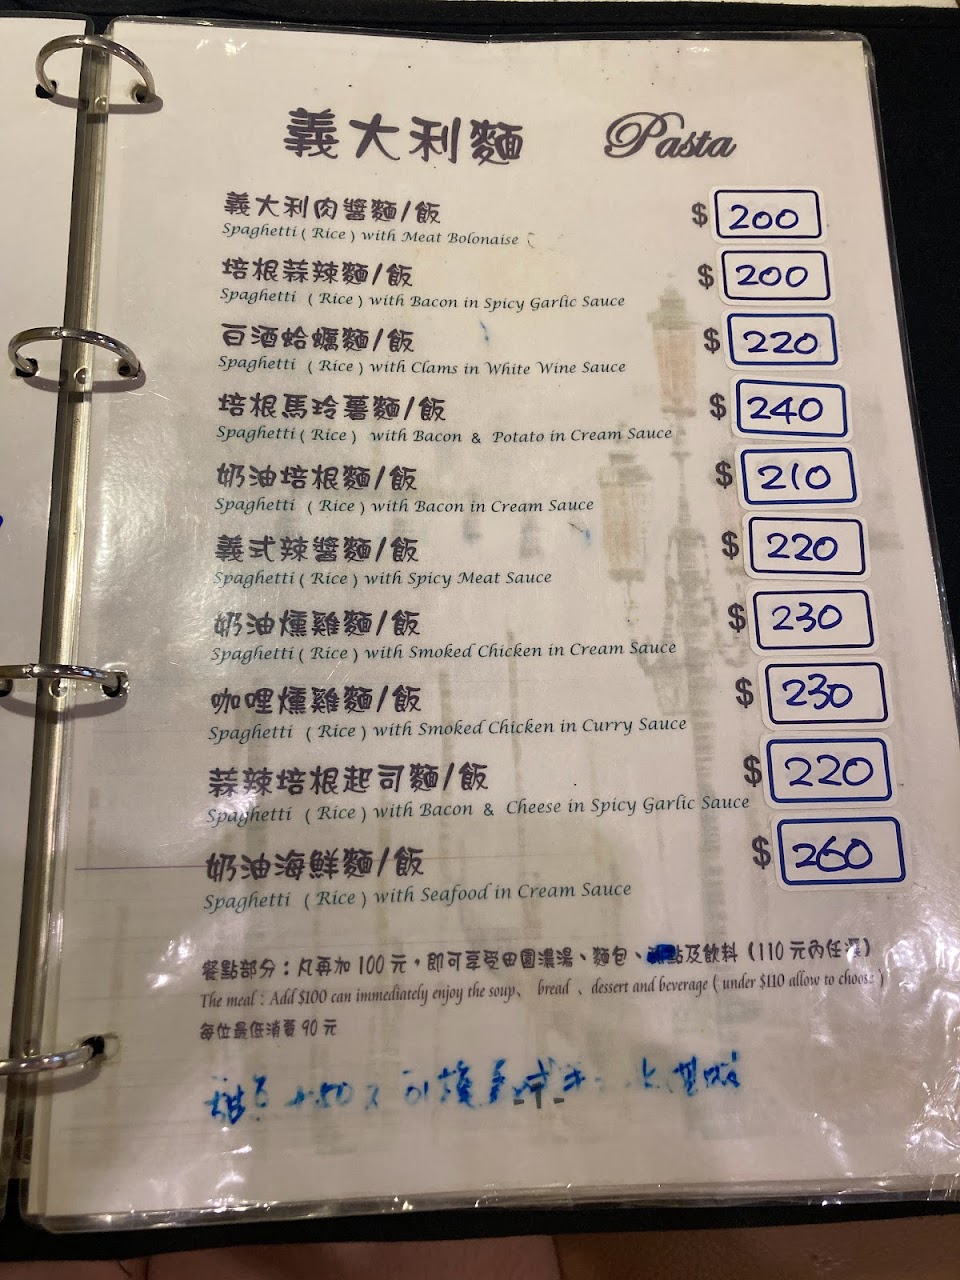 義大利麵 Pasta
義大利肉醬麵/飯 $ 200
Spaghetti ( Rice ) with Meat Bolonaise
培根蒜辣麵/飯 $ 200
Spaghetti ( Rice ) with Bacon in Spicy Garlic Sauce
白酒蛤蠣麵/飯 $ 220
Spaghetti ( Rice ) with Clams in White Wine Sauce
培根馬玲薯麵/飯 $ 240
Spaghetti ( Rice ) with Bacon & Potato in Cream Sauce
奶油培根麵/飯 $ 210
Spaghetti ( Rice ) with Bacon in Cream Sauce
義式辣醬麵/飯 $ 220
Spaghetti ( Rice ) with Spicy Meat Sauce
奶油燻雞麵/飯 $ 230
Spaghetti ( Rice ) with Smoked Chicken in Cream Sauce
咖哩燻雞麵/飯 $ 230
Spaghetti ( Rice ) with Smoked Chicken in Curry Sauce
蒜辣培根起司麵/飯 $ 220
Spaghetti ( Rice ) with Bacon & Cheese in Spicy Garlic Sauce
奶油海鮮麵/飯 $ 260
Spaghetti ( Rice ) with Seafood in Cream Sauce
餐點部分：凡再加 100 元，即可享受田園濃湯、麵包、點及飲料（110 元內任選）
The meal : Add $100 can immediately enjoy the soup、 bread 、 dessert and beverage ( under $110 allow to choose )
每位最低消費 90 元
+50 可換